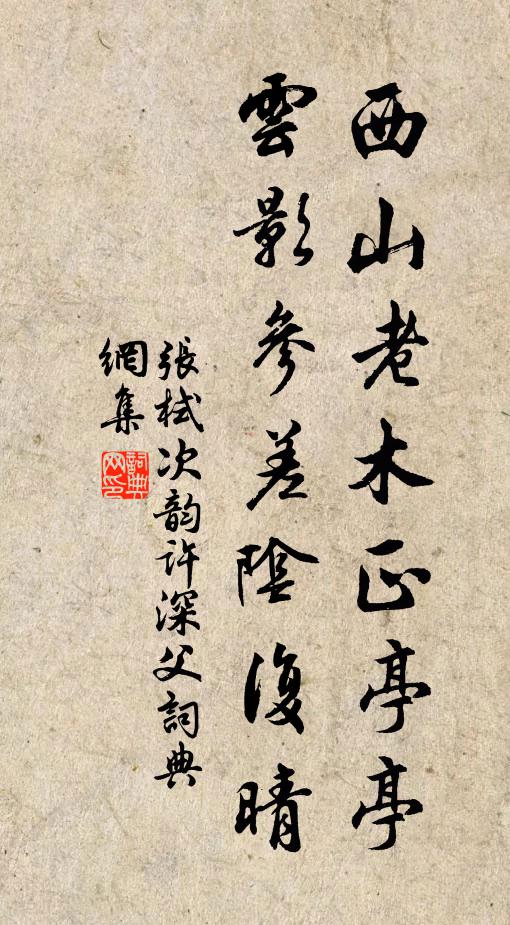 西山老木正亭亭
雲影參差陰復晴
張栻次韵許深父詞典
網集
詞典網印